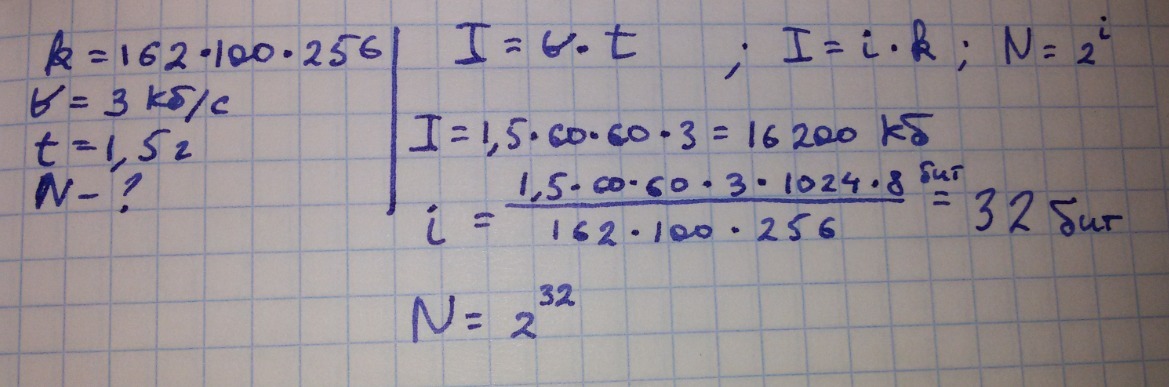 k = 162·100·256
v = 3 кб/с
t = 1,5 г
N - ?
I = v·t ; I = i·k ; N = 2^i
I = 1,5·60·60·3 = 16200 кб
i = 1,5·60·60·3·1024·8 бит / 162·100·256 = 32 бит
N = 2^32